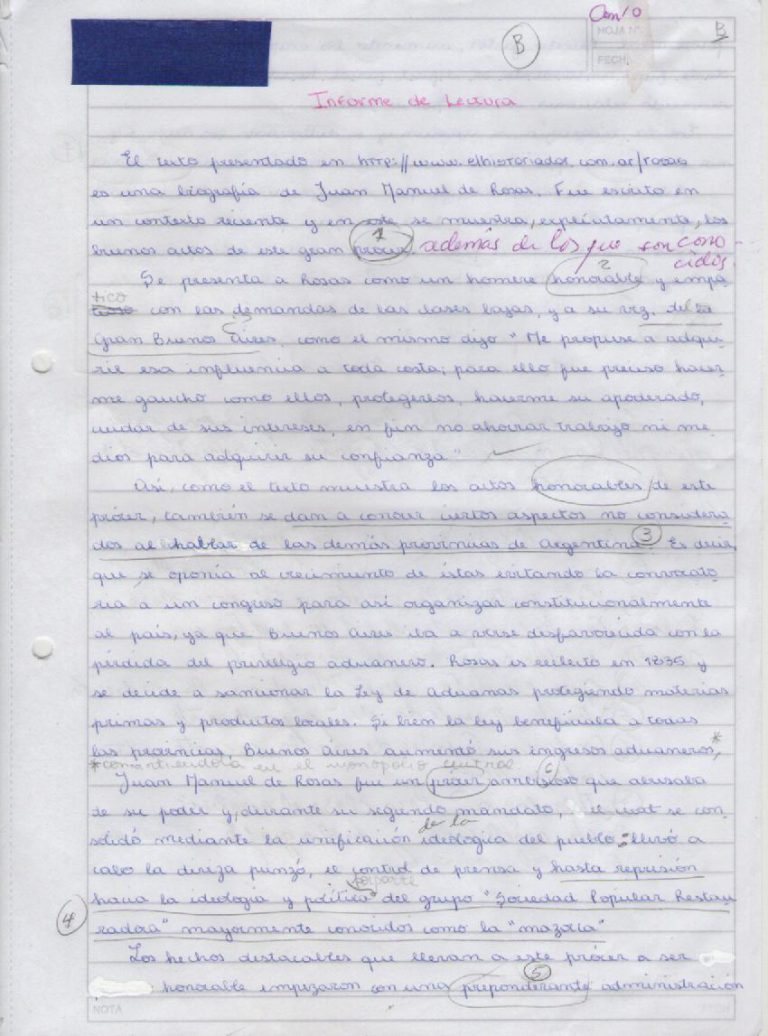 Com/o
B
B
HOJA N°
FECH.
Informe de Lectura
El texto presentado en http://www.elhistoriador.com.ar/rosas
es una biografía de Juan Manuel de Rosas. Fue escrito en
un contexto reciente y en este se muestra, explícitamente, los
buenos actos de este gran prócer 1 además de los que son cono-
cidos.
Se presenta a Rosas como un hombre honorable 2 y empá
tico con las demandas de las clases bajas, y a su vez, de la
Gran Buenos Aires, como el mismo dijo "Me propuse a adqui-
rir esa influencia a toda costa; para ello fue preciso hacer
me gaucho como ellos, protegerlos, hacerme su apoderado,
cuidar de sus intereses, en fin no ahorrar trabajo ni me
dios para adquirir su confianza"
Así, como el texto muestra los actos honorables de este
prócer, también se dan a conocer ciertos aspectos no considera
dos al hablar de las demás provincias de Argentina 3 Es decir,
que se oponía al crecimiento de éstas evitando la convocato
ria a un congreso para así organizar constitucionalmente
al país, ya que Buenos Aires iba a verse desfavorecida con la
pérdida del privilegio aduanero. Rosas es reelecto en 1835 y
se decide a sancionar la Ley de Aduanas protegiendo materias
primas y productos locales. Si bien la ley beneficiaba a todas
las provincias, Buenos Aires aumentó sus ingresos aduaneros,*
*convirtiendola en el monopolio central 6
Juan Manuel de Rosas fue un prócer ambicioso que abusaba
de su poder y, durante su segundo mandato, el cual se con
solidó mediante la unificación de la ideologica del pueblo: llevó a
cabo la diviza punzó, el control de prensa y hasta represión
por parte
hacia la ideología y política del grupo "Sociedad Popular Restau
4
radora" mayormente conocidos como la "mazorca"
Los hechos destacables que llevan a este prócer a ser
5
honorable empezaron con una preponderante administración
NOTA